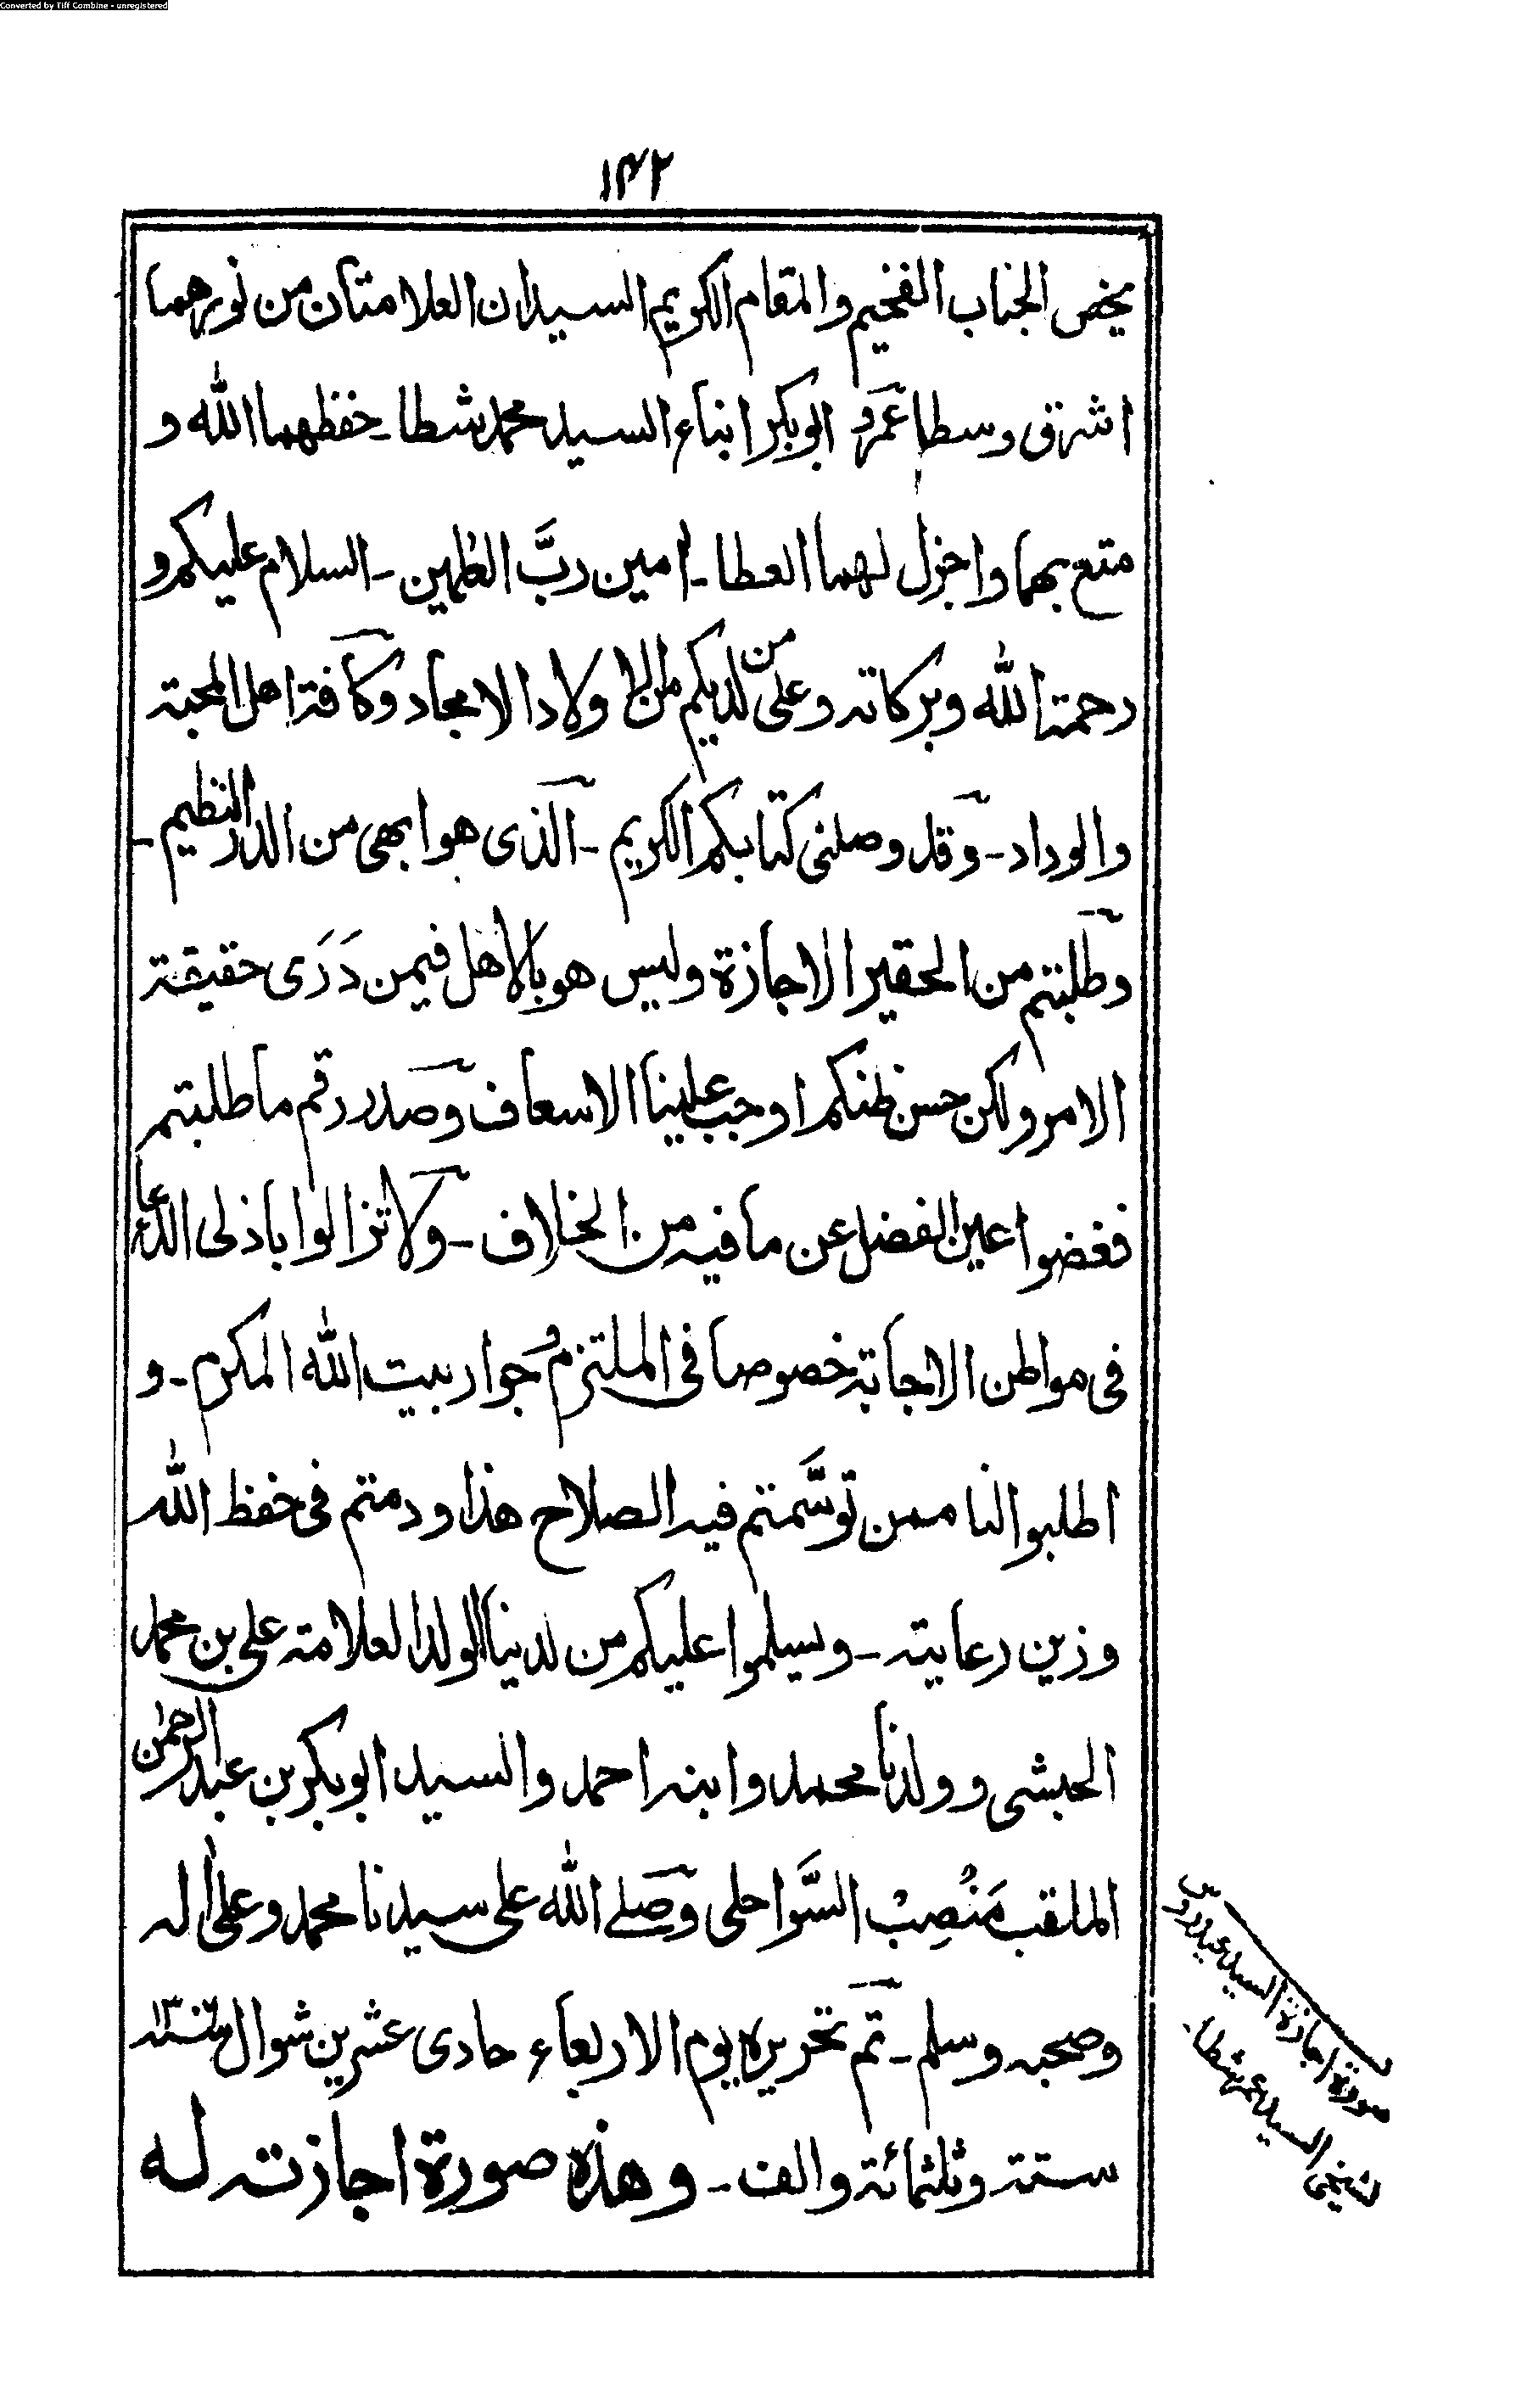 Converted by Tiff Combine - unregistered
١٤٢
يخص الجناب الفخيم والمقام الكريم السيدان العلامتان من نورهما
اشرق وسطا عمر و ابوبكر ابناء السيد محمد شطا ـ حفظهما الله و
متع بهما واجزل لهما العطا ـ اٰمين ربَّ العٰلمين ـ السلام عليكم و
رحمة الله وبركاته وعلى من لديكم من الاولاد الامجاد وكافة اهل المحبة
والوداد ـ وقد وصلنى كتابكم الكريم ـ الذى هو ابهى من الدر النظيم ـ
وطلبتم من الحقير الاجازة وليس هو بالاهل فيمن دَرَى حقيقة
الامر ولكن حسن ظنكم اوجب علينا الاسعاف وصدر رقم ما طلبتم
فغضوا عين الفضل عن ما فيه من الخلاف ـ ولا تزالوا باذلى الدعاء
فى مواطن الاجابة خصوصا فى الملتزم و جوار بيت الله المكرم ـ و
اطلبوا لنا ممن توسَّمتم فيه الصلاح هذا ودمتم فى حفظ الله
وزين رعايته ـ ويسلموا عليكم من لدينا الولد العلامة على بن محمد
الحبشى وولدنا محمد وابنه احمد والسيد ابوبكر بن عبد الرحمٰن
الملقب مَنْصِبْ السَّواحلى وصلے الله على سيدنا محمد وعلى اٰله
وصحبه وسلم ـ تم تحريره يوم الاربعاء حادى عشرين شوال سنة ١٣٠٦
ستة وثلثمائة والف ـ وهذه صورة اجازته له
صورة اجازة السيد عيدروس
لشيخى السيد عمر شطا